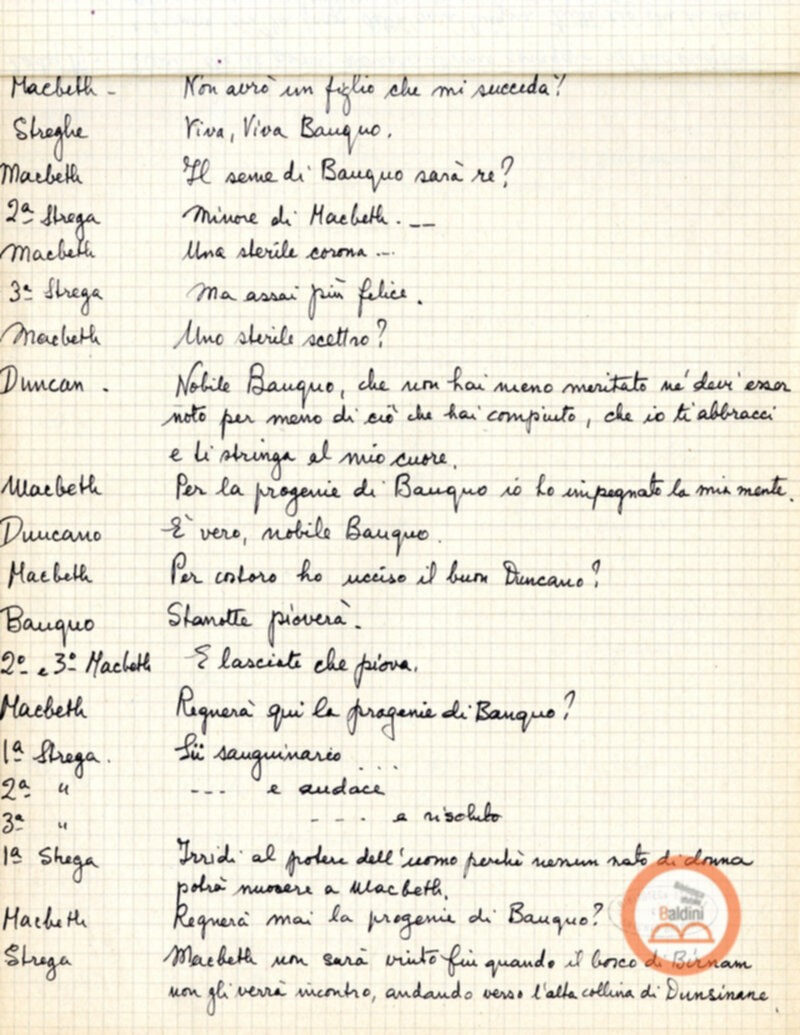 Macbeth - Non avrò un figlio che mi succeda?
Streghe Viva, Viva Banquo.
Macbeth Il seme di Banquo sarà re?
2ª Strega Minore di Macbeth. __
Macbeth Una sterile corona ...
3ª Strega Ma assai più felice.
Macbeth Uno sterile scettro?
Duncan. Nobile Banquo, che non hai meno meritato né devi esser
noto per meno di ciò che hai compiuto, che io ti abbracci
e ti stringa al mio cuore.
Macbeth Per la progenie di Banquo io ho impegnato la mia mente.
Duncano È vero, nobile Banquo.
Macbeth Per costoro ho ucciso il buon Duncano?
Banquo Stanotte pioverà.
2º e 3º Macbeth E lasciate che piova.
Macbeth Regnerà qui la progenie di Banquo?
1ª Strega. Sii sanguinario ...
2ª " --- e audace
3ª " ---- e risoluto
1ª Strega Irridi al potere dell'uomo perchè nessun nato di donna
potrà nuocere a Macbeth.
Macbeth Regnerà mai la progenie di Banquo?
Strega Macbeth non sarà vinto fin quando il bosco di Birnam
non gli verrà incontro, andando verso l'alta collina di Dunsinane.
Biblioteca
Baldini